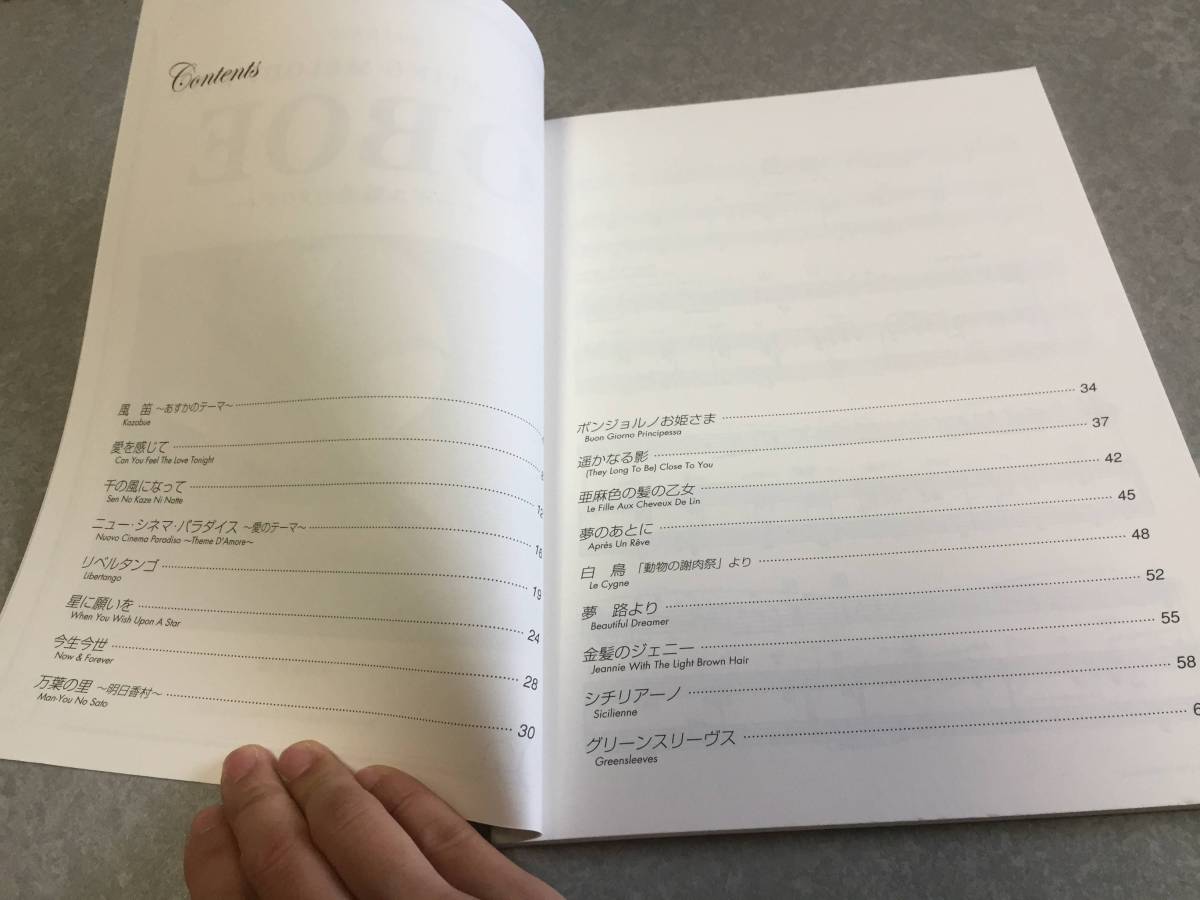 Contents
風 笛 ～あすかのテーマ～
Kazabue
愛を感じて
Can You Feel The Love Tonight
千の風になって 12
Sen No Kaze Ni Natte
ニュー・シネマ・パラダイス ～愛のテーマ～ 16
Nuovo Cinema Paradiso ～Theme D'Amore～
リベルタンゴ 19
Libertango
星に願いを 24
When You Wish Upon A Star
今生今世 28
Now & Forever
万葉の里 ～明日香村～ 30
Man-You No Sato
ボンジョルノお姫さま 34
Buon Giorno Principessa
遥かなる影 37
(They Long To Be) Close To You
亜麻色の髪の乙女 42
Le Fille Aux Cheveux De Lin
夢のあとに 45
Après Un Rêve
白 鳥 「動物の謝肉祭」より 48
Le Cygne
夢 路より 52
Beautiful Dreamer
金髪のジェニー 55
Jeannie With The Light Brown Hair
シチリアーノ 58
Sicilienne
グリーンスリーヴス 6
Greensleeves